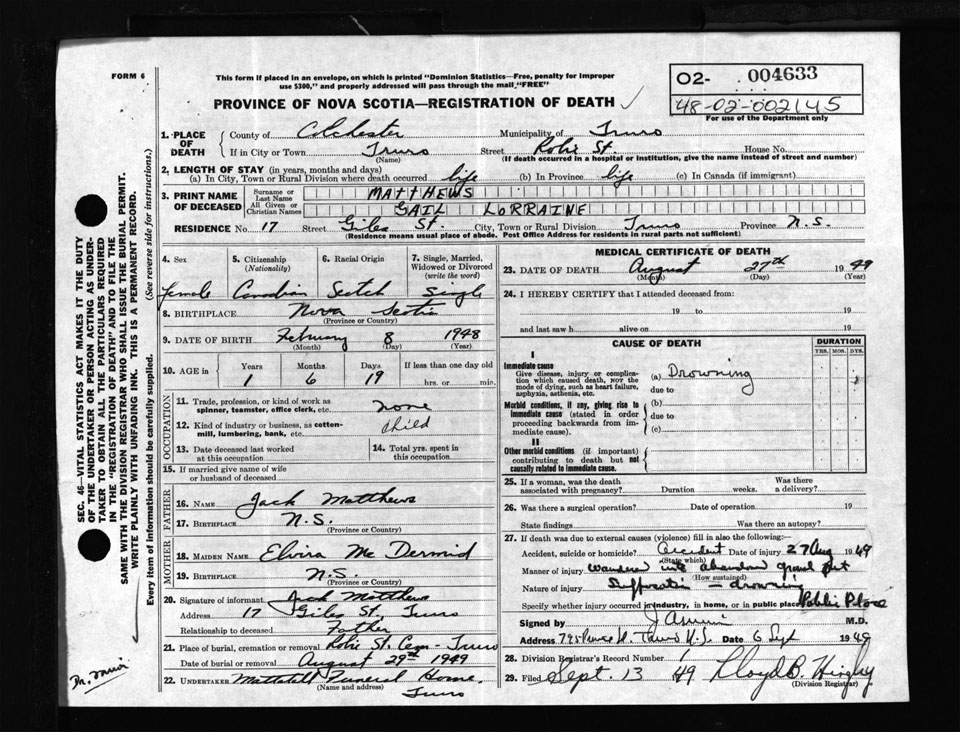 FORM 6
This form if placed in an envelope, on which is printed "Dominion Statistics—Free, penalty for improper
use $300," and properly addressed will pass through the mail "FREE"
O2- 004633
48-02-002145
For use of the Department only
PROVINCE OF NOVA SCOTIA—REGISTRATION OF DEATH
1. PLACE OF DEATH
County of Colchester Municipality of Truro
If in City or Town Truro Street Robie St. House No.
(Name) (If death occurred in a hospital or institution, give the name instead of street and number)
2. LENGTH OF STAY (in years, months and days)
(a) In City, Town or Rural Division where death occurred life (b) In Province life (c) In Canada (if immigrant)
3. PRINT NAME OF DECEASED
Surname or Last Name MATTHEWS
All Given or Christian Names GAIL LORRAINE
RESIDENCE No. 17 Street Giles St. City, Town or Rural Division Truro Province N.S.
(Residence means usual place of abode. Post Office Address for residents in rural parts not sufficient)
4. Sex 5. Citizenship (Nationality) 6. Racial Origin 7. Single, Married, Widowed or Divorced (write the word)
female Canadian Scotch Single
8. BIRTHPLACE Nova Scotia
(Province or Country)
9. DATE OF BIRTH February 8 1948
(Month) (Day) (Year)
10. AGE in Years Months Days If less than one day old
1 6 19 hrs. or min.
OCCUPATION
11. Trade, profession or kind of work as spinner, teamster, office clerk, etc. none
12. Kind of industry or business, as cotton-mill, lumbering, bank, etc. child
13. Date deceased last worked at this occupation
14. Total yrs. spent in this occupation
15. If married give name of wife or husband of deceased
FATHER
16. NAME Jack Matthews
17. BIRTHPLACE N.S.
(Province or Country)
MOTHER
18. MAIDEN NAME Elvira McDermid
19. BIRTHPLACE N.S.
(Province or Country)
20. Signature of informant Jack Matthews
Address 17 Giles St, Truro
Relationship to deceased Father
21. Place of burial, cremation or removal Robie St. Cem - Truro
Date of burial or removal August 29th 1949
22. UNDERTAKER Mattatall Funeral Home,
(Name and address) Truro
MEDICAL CERTIFICATE OF DEATH
23. DATE OF DEATH August 27th 1949
(Month) (Day) (Year)
24. I HEREBY CERTIFY that I attended deceased from:
19 to 19
and last saw h alive on 19
CAUSE OF DEATH
DURATION
YRS. MOS. DYS.
I
Immediate cause
Give disease, injury or complication which caused death, NOT the mode of dying, such as heart failure, asphyxia, asthenia, etc.
(a) Drowning
due to
Morbid conditions, if any, giving rise to immediate cause (stated in order proceeding backwards from immediate cause).
(b)
due to
(c)
II
Other morbid conditions (if important) contributing to death but not causally related to immediate cause.
25. If a woman, was the death associated with pregnancy? Duration weeks. Was there a delivery?
26. Was there a surgical operation? Date of operation 19
State findings Was there an autopsy?
27. If death was due to external causes (violence) fill in also the following:
Accident, suicide or homicide? Accident Date of injury 27 Aug 1949
(State which)
Manner of injury wandered into abandon gravel pit
(How sustained)
Nature of injury Suffocation - drowning
Specify whether injury occurred in industry, in home, or in public place Public Place
Signed by M.D.
Address Truro N.S. Date 6 Sept 1949
28. Division Registrar's Record Number
29. Filed Sept. 13 49 Lloyd B.
(Division Registrar)
SEC. 46—VITAL STATISTICS ACT MAKES IT THE DUTY
OF THE UNDERTAKER OR PERSON ACTING AS UNDER-
TAKER TO OBTAIN ALL THE PARTICULARS REQUIRED
IN THE "REGISTRATION OF DEATH" AND TO FILE THE
SAME WITH THE DIVISION REGISTRAR WHO SHALL ISSUE THE BURIAL PERMIT.
WRITE PLAINLY WITH UNFADING INK. THIS IS A PERMANENT RECORD.
Every item of information should be carefully supplied. (See reverse side for instructions.)